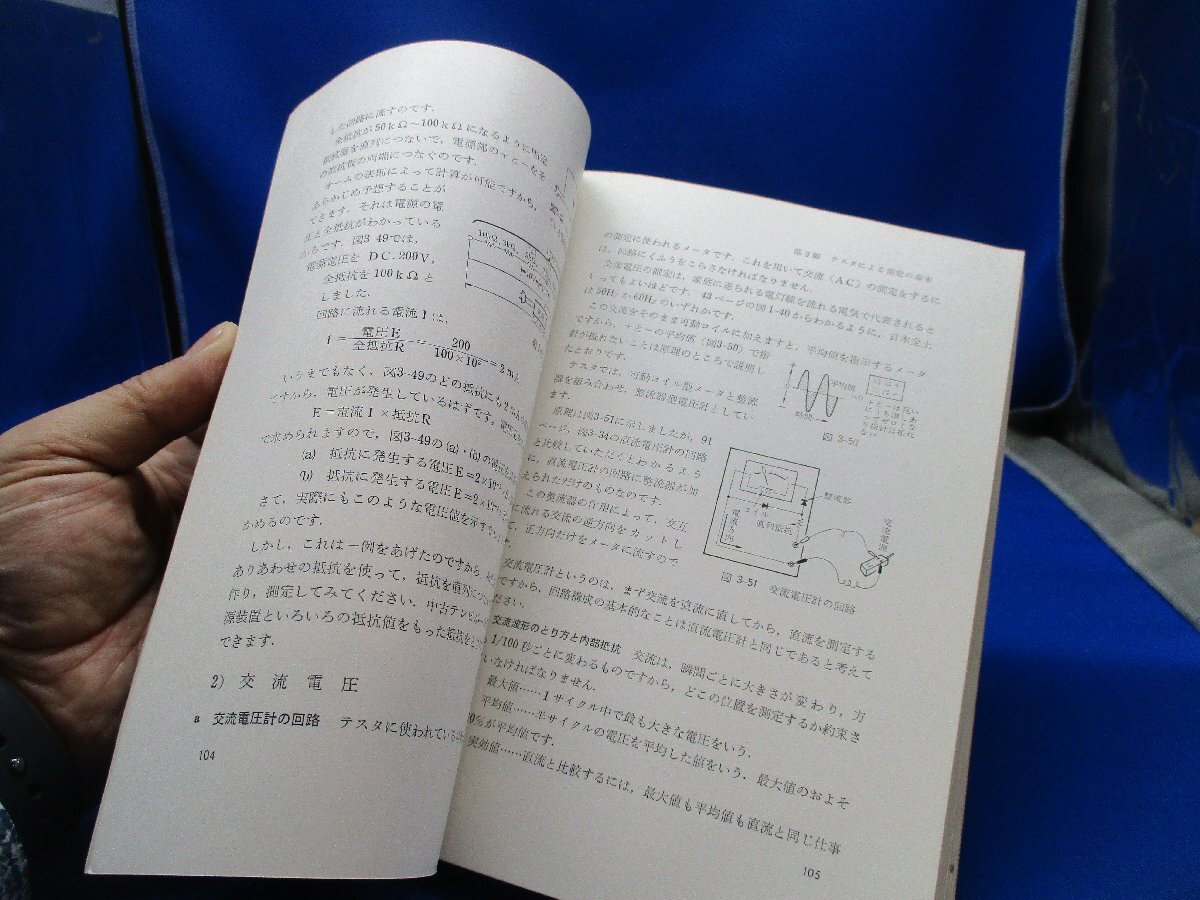 した回路に流すのです.
全抵抗が50kΩ〜100kΩになるように固定
抵抗器を直列につないで, 電源部の+と−をそ
の抵抗板の両端につなぐのです.
オームの法則によって計算が可能ですから,
あらかじめ予想することが
できます. それは電源の電
圧と全抵抗がわかっている
からです. 図3-49では,
電源電圧を DC. 200V,
全抵抗を100kΩと
しました.
回路に流れる電流Iは,
I=電圧E/全抵抗R=200/100×10³=2mA
いうまでもなく, 図3-49のどの抵抗にも2mA
ですから, 電圧が発生しているはずです.
E=電流I×抵抗R
で求められますので, 図3-49の(a)・(b)の
(a) 抵抗に発生する電圧E=2×10
(b) 抵抗に発生する電圧E=2×10
さて, 実際にもこのような電圧値を示す
かめるのです.
しかし, これは一例をあげたのですから,
ありあわせの抵抗を使って, 抵抗を直列に
作り, 測定してみてください. 中古テレビ
源装置といろいろの抵抗値をもった抵抗を
できます.
2) 交流電圧
a 交流電圧計の回路 テスタに使われている
104
第3編 テスタによる測定の基本
の測定に使われるメータです. これを用いて交流(AC)の測定をするに
は, 回路にくふうをこらさなければなりません.
交流電圧の測定は, 家庭に送られる電灯線を流れる電気で代表されると
いってもよいほどです. 43ページの図1-40からわかるように, 日本全土
は50Hzか60Hzのいずれかです.
この交流をそのまま可動コイルに加えますと, 平均値を指示するメータ
ですから, +と−の平均値(図3-50)で指
針が振れないことは原理のところで説明し
たとおりです.
テスタでは, 可動コイル型メータと整流
器を組み合わせ, 整流器型電圧計としてい
ます.
平均値
時間
図 3-50
原理は図3-51に示しましたが, 91
ページ, 図3-34の直流電圧計の回路
と比較していただくとわかるよう
に, 直流電圧計の回路に整流器が加
えられただけのものなのです.
この整流器の作用によって, 交互
に流れる交流の逆方向をカットし
て, 正方向だけをメータに流すので
す.
整流器
コイル
直列抵抗
電流方向
交流電源
図 3-51 交流電圧計の回路
交流電圧計というのは, まず交流を直流に直してから, 直流を測定する
ですから, 回路構成の基本的なことは直流電圧計と同じであると考えて
ださい.
交流波形のとり方と内部抵抗 交流は, 瞬間ごとに大きさが変わり, 方
1/100秒ごとに変わるものですから, どこの位置を測定するか約束さ
いなければなりません.
最大値……1サイクル中で最も大きな電圧をいう.
平均値……半サイクルの電圧を平均した値をいう. 最大値のおよそ
0%が平均値です.
実効値……直流と比較するには, 最大値も平均値も直流と同じ仕事
105